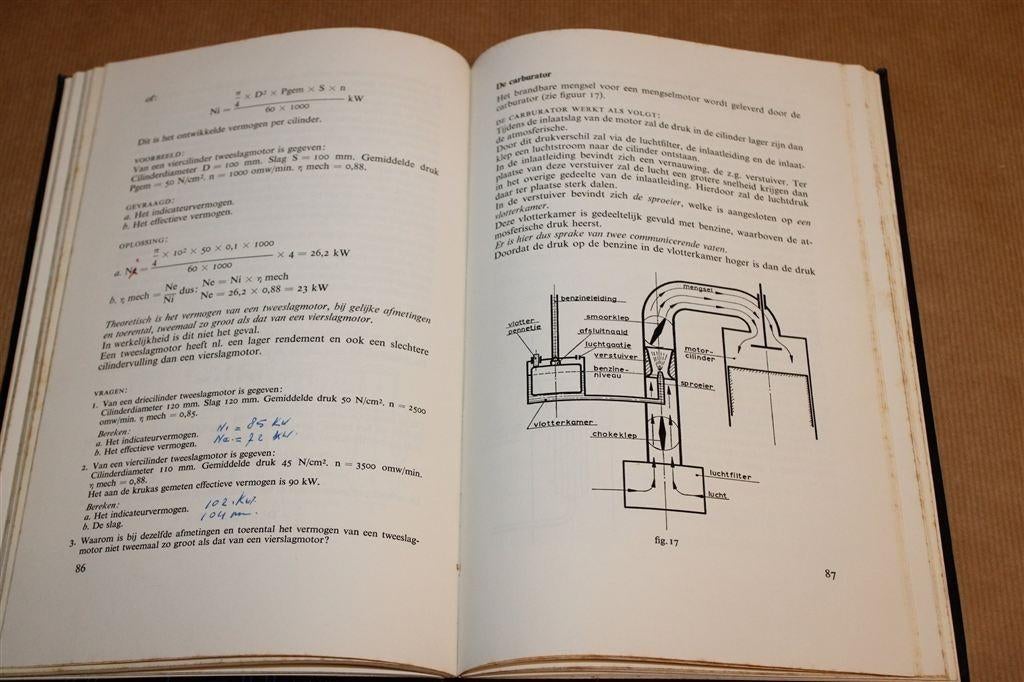 of:
π/4 × D² × Pgem × S × n
Ni = ―――― kW
60 × 1000
Dit is het ontwikkelde vermogen per cilinder.
VOORBEELD:
Van een viercilinder tweeslagmotor is gegeven:
Cilinderdiameter D = 100 mm. Slag S = 100 mm. Gemiddelde druk
Pgem = 50 N/cm². n = 1000 omw/min. η mech = 0,88.
GEVRAAGD:
a. Het indicateurvermogen.
b. Het effectieve vermogen.
OPLOSSING:
π/4 × 10² × 50 × 0,1 × 1000
a. Ne = ―――― × 4 = 26,2 kW
60 × 1000
b. η mech = Ne/Ni dus: Ne = Ni × η mech
Ne = 26,2 × 0,88 = 23 kW
Theoretisch is het vermogen van een tweeslagmotor, bij gelijke afmetingen
en toerental, tweemaal zo groot als dat van een vierslagmotor.
In werkelijkheid is dit niet het geval.
Een tweeslagmotor heeft nl. een lager rendement en ook een slechtere
cilindervulling dan een vierslagmotor.
VRAGEN:
1. Van een driecilinder tweeslagmotor is gegeven:
Cilinderdiameter 120 mm. Slag 120 mm. Gemiddelde druk 50 N/cm². n = 2500
omw/min. η mech = 0,85.
Bereken:
a. Het indicateurvermogen. Ni = 85 kW
b. Het effectieve vermogen. Ne = 72 kW.
2. Van een viercilinder tweeslagmotor is gegeven:
Cilinderdiameter 110 mm. Gemiddelde druk 45 N/cm². n = 3500 omw/min.
η mech = 0,88.
Het aan de krukas gemeten effectieve vermogen is 90 kW.
Bereken:
a. Het indicateurvermogen. 102 kW.
b. De slag. 104 mm.
3. Waarom is bij dezelfde afmetingen en toerental het vermogen van een tweeslag-
motor niet tweemaal zo groot als dat van een vierslagmotor?
86
De carburator
Het brandbare mengsel voor een mengselmotor wordt geleverd door de
carburator (zie figuur 17).
DE CARBURATOR WERKT ALS VOLGT:
Tijdens de inlaatslag van de motor zal de druk in de cilinder lager zijn dan
de atmosferische.
Door dit drukverschil zal via de luchtfilter, de inlaatleiding en de inlaat-
klep een luchtstroom naar de cilinder ontstaan.
In de inlaatleiding bevindt zich een vernauwing, de z.g. verstuiver. Ter
plaatse van deze verstuiver zal de lucht een grotere snelheid krijgen dan
in het overige gedeelte van de inlaatleiding. Hierdoor zal de luchtdruk
daar ter plaatse sterk dalen.
In de verstuiver bevindt zich de sproeier, welke is aangesloten op een
vlotterkamer.
Deze vlotterkamer is gedeeltelijk gevuld met benzine, waarboven de at-
mosferische druk heerst.
Er is hier dus sprake van twee communicerende vaten.
Doordat de druk op de benzine in de vlotterkamer hoger is dan de druk
mengsel
benzineleiding
smoorklep
vlotter-
pennetje
afsluitnaald
luchtgaatje
verstuiver
motor-
cilinder
benzine-
niveau
sproeier
vlotterkamer
chokeklep
luchtfilter
lucht
fig. 17
87